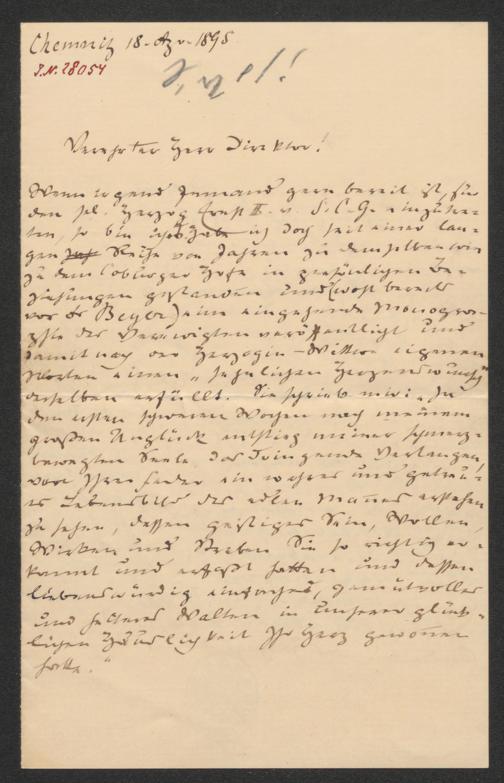 Chemnitz 18. Apr. 1895
J.N. 28054
Verehrter Herr Direktor!
Wenn irgend Jemand gern bereit ist, für
den sel. Herzog Ernst II. v. S. C. G. einzutre-
ten, so bin ich's, habe ich doch seit einer lan-
gen Reihe von Jahren zu demselben wie
zu dem Coburger Hofe in persönlichen Be-
ziehungen gestanden und (wohl bereits
vor Beyer) eine eingehende Monogra-
phie des Verewigten veröffentlicht und
damit nach der Herzogin-Wittwe eigenen
Worten einen „sehnlichen Herzenswunsch"
derselben erfüllt. Sie schrieb mir: „In
den ersten schweren Wochen nach meinem
großen Unglück entstieg meiner schmerz-
bewegten Seele das dringende Verlangen,
von Ihrer Feder ein wahres und getreu-
es Lebensbild des edlen Mannes erstehen
zu sehen, dessen geistiges Sein, Wollen,
Wirken und Streben Sie so richtig er-
kannt und erfaßt hatten und dessen
liebenswürdig einfaches, gemütvolles
und heiteres Walten in unserer glück-
lichen Häuslichkeit Ihr Herz gewonnen
hatte."